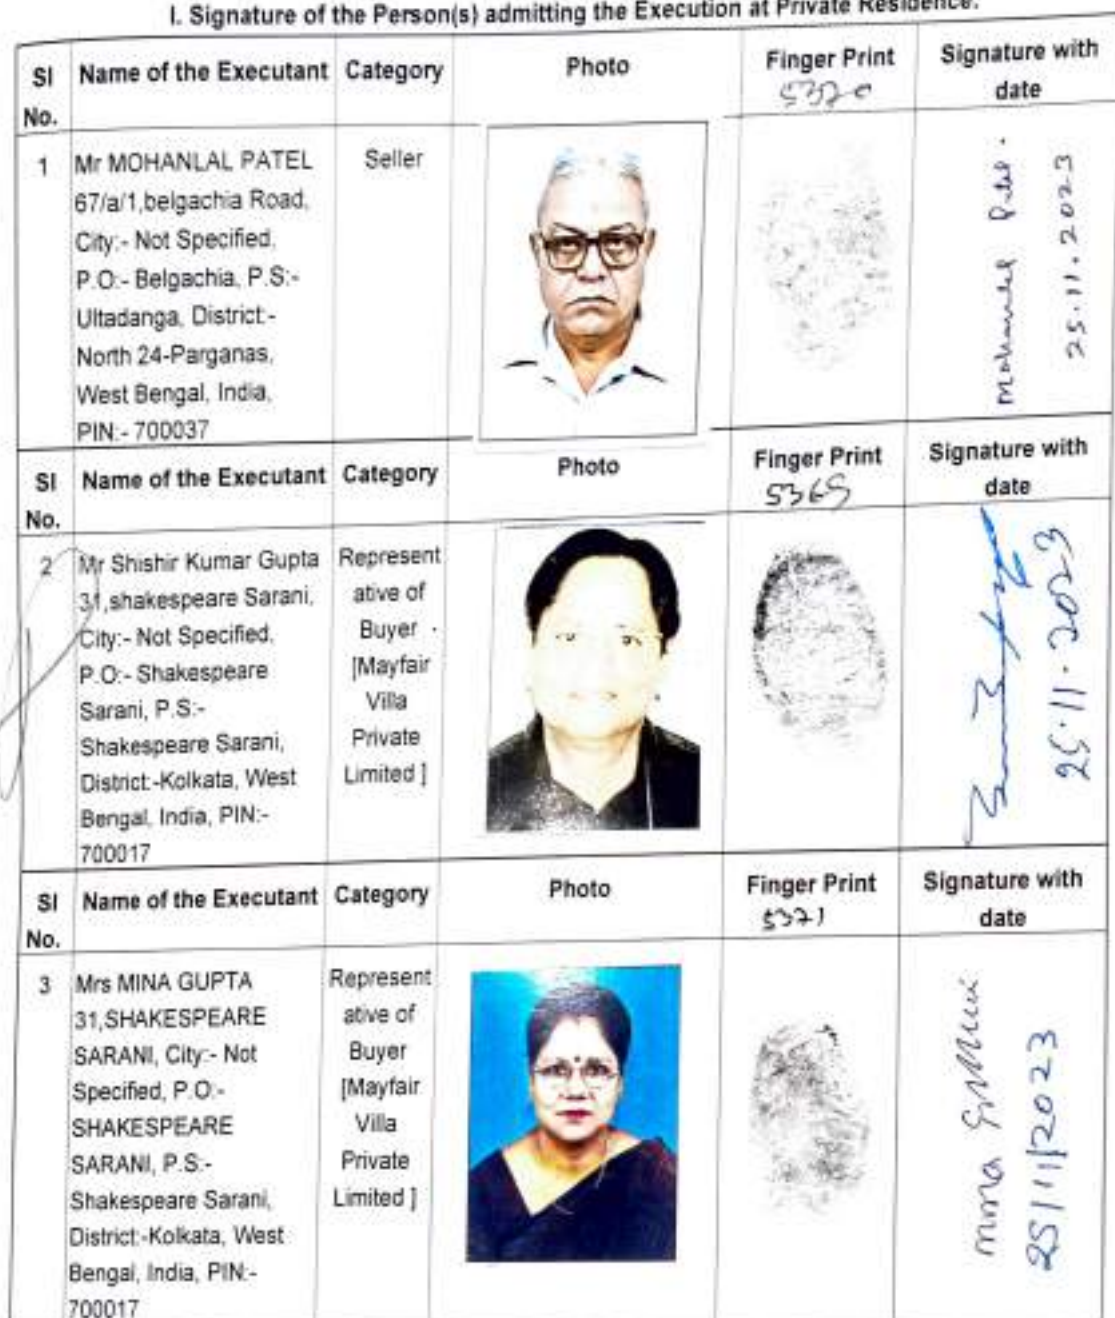 I. Signature of the Person(s) admitting the Execution at Private Residence.
Sl No. Name of the Executant Category Photo Finger Print Signature with date
5370
1 Mr MOHANLAL PATEL Seller
67/a/1,belgachia Road,
City:- Not Specified,
P.O:- Belgachia, P.S:-
Ultadanga, District:-
North 24-Parganas,
West Bengal, India,
PIN:- 700037
Mohanlal Patel.
25.11.2023
Sl No. Name of the Executant Category Photo Finger Print Signature with date
5369
2 Mr Shishir Kumar Gupta
31,shakespeare Sarani,
City:- Not Specified,
P.O:- Shakespeare
Sarani, P.S:-
Shakespeare Sarani,
District:-Kolkata, West
Bengal, India, PIN:-
700017
Represent
ative of
Buyer
[Mayfair
Villa
Private
Limited ]
25.11.2023
Sl No. Name of the Executant Category Photo Finger Print Signature with date
5371
3 Mrs MINA GUPTA
31,SHAKESPEARE
SARANI, City:- Not
Specified, P.O:-
SHAKESPEARE
SARANI, P.S:-
Shakespeare Sarani,
District:-Kolkata, West
Bengal, India, PIN:-
700017
Represent
ative of
Buyer
[Mayfair
Villa
Private
Limited ]
Mina
25/11/2023